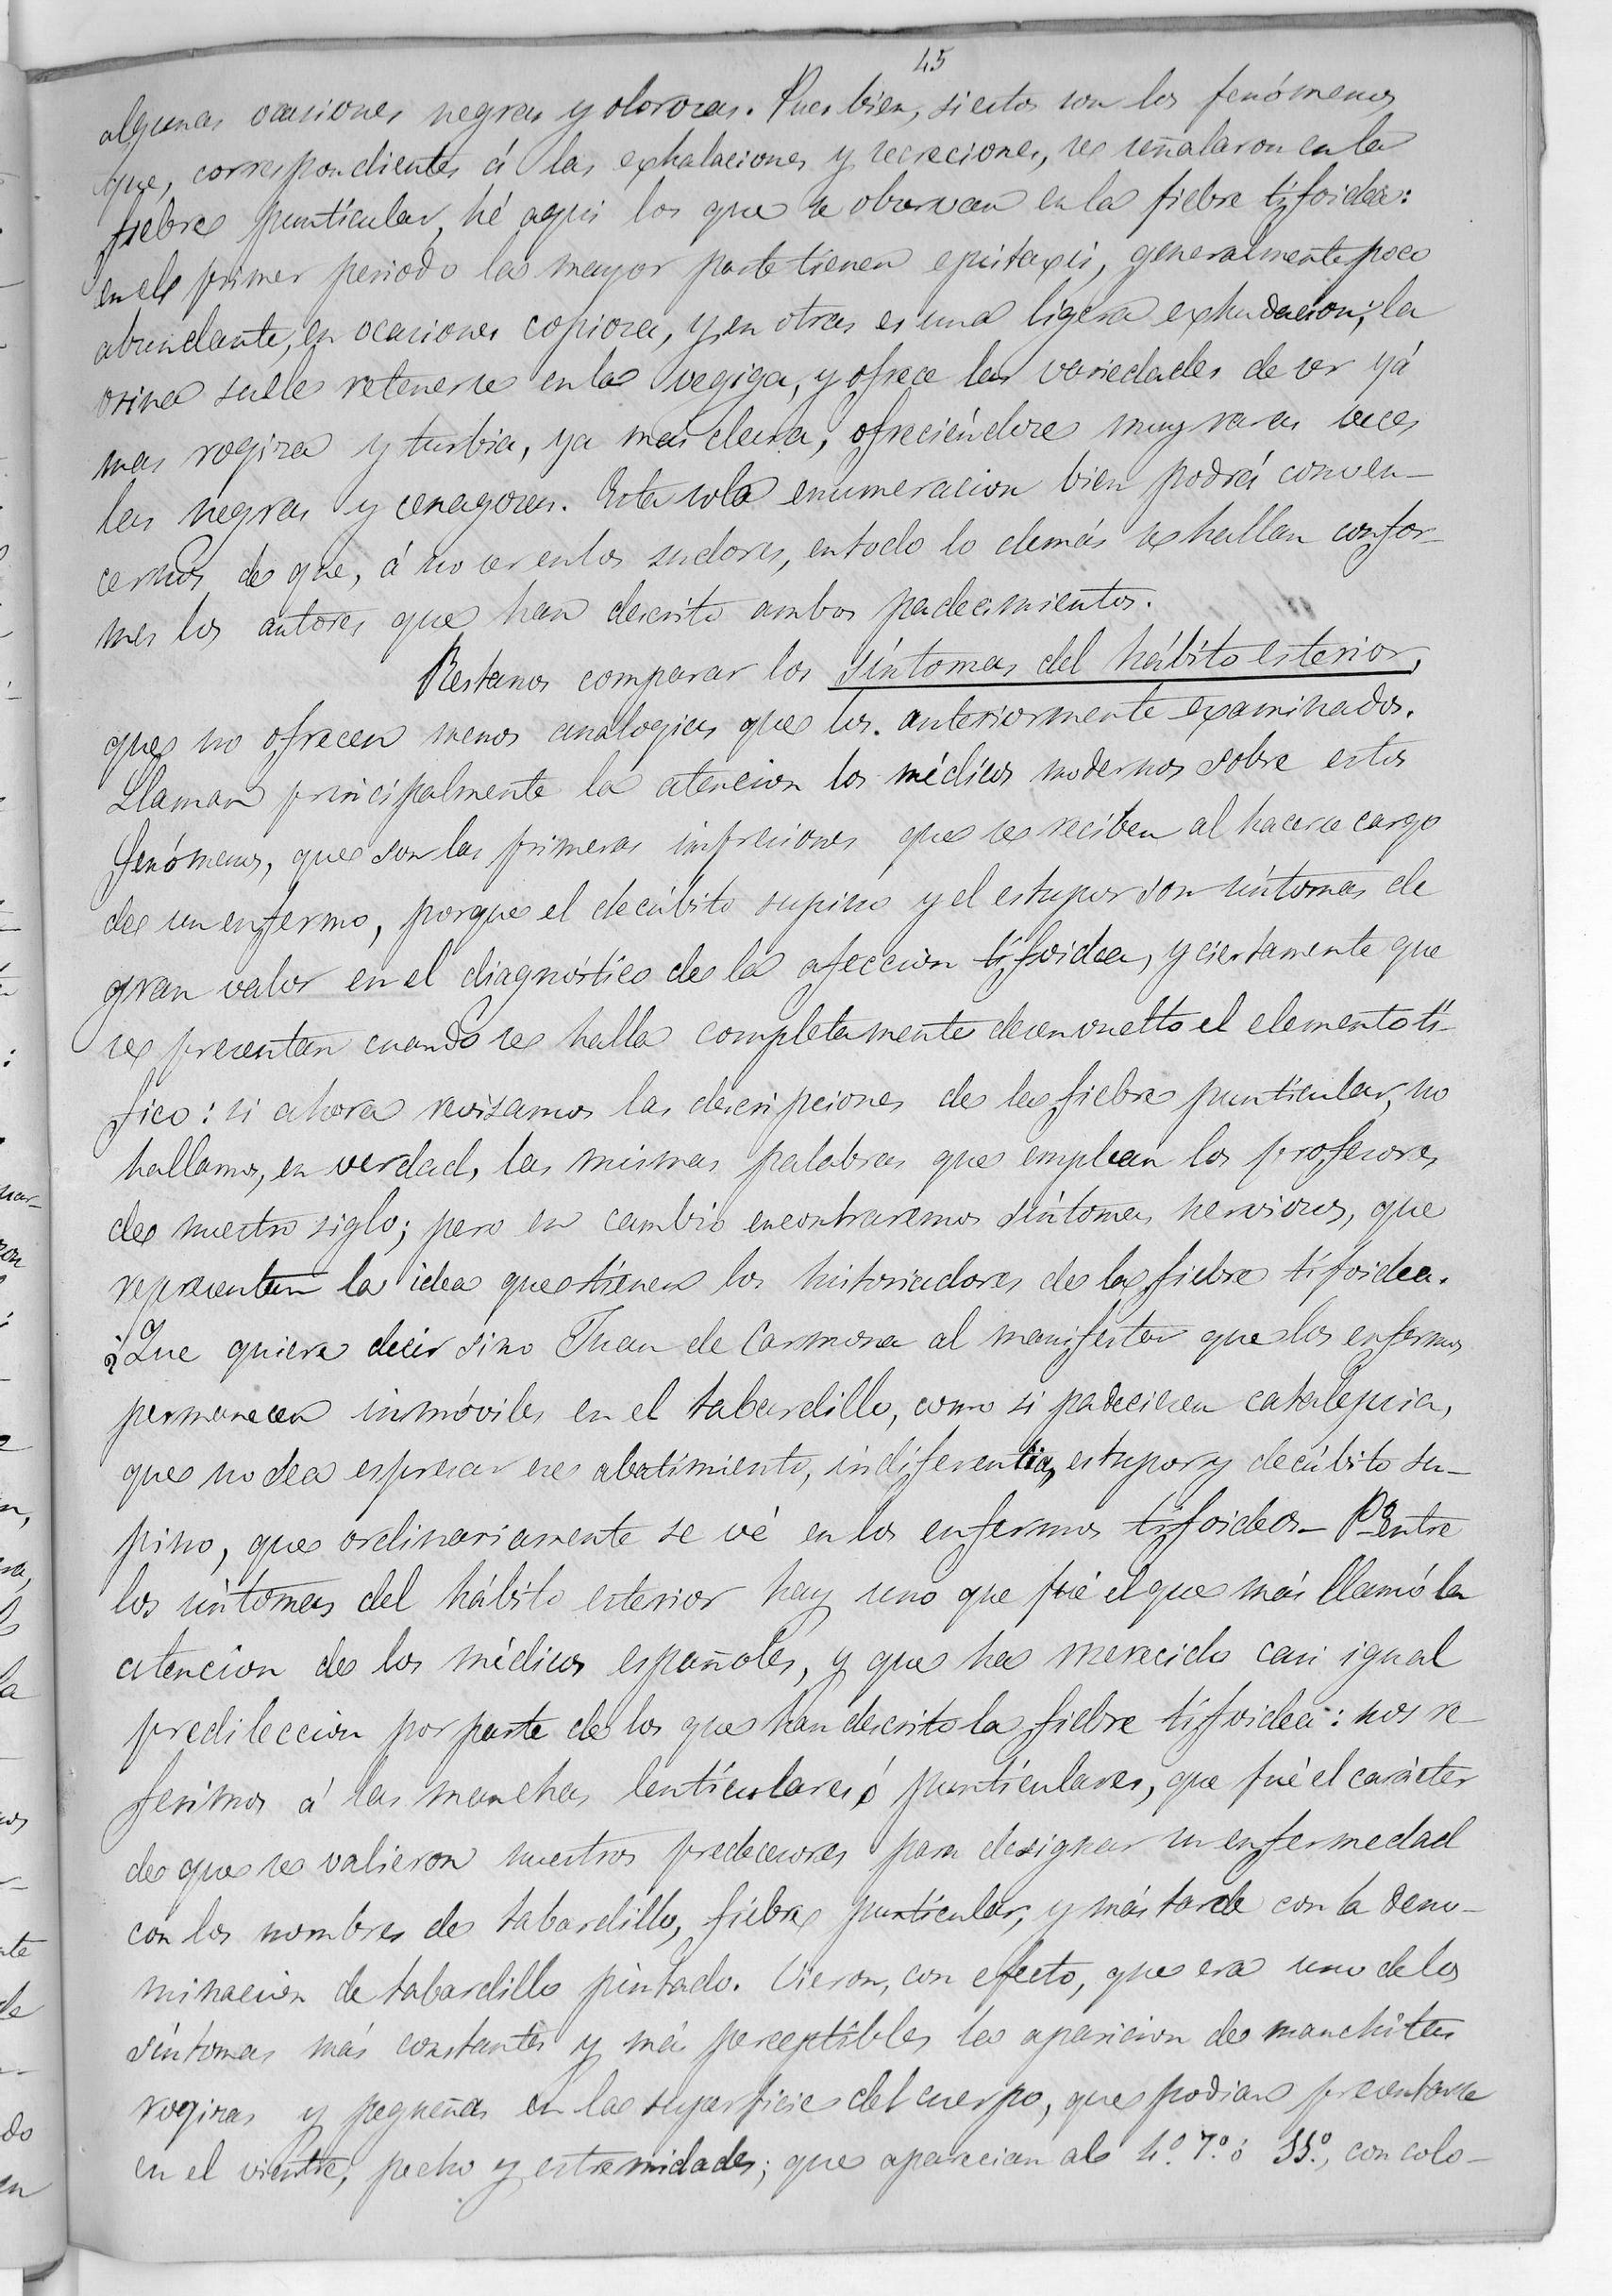 45
algunas ocasiones negras y olorosas. Pues bien, si estos son los fenómenos
que, correspondientes á las exhalaciones y secreciones, se señalaron en la
fiebre puntícular, hé aqui los que se observan en la fiebre tifoidea:
en el primer periodo la mayor parte tienen epistaxis, generalmente poco
abundante, en ocasiones copiosa, y en otras es una ligera exhudacion; la
orina suele retenerse en la vegiga, y ofrece las variedades de ser yá
mas rogiza y turbia, ya mas clara, ofreciéndose muy raras veces
las negras y cenagosas. Esta sola enumeracion bien podrá conven-
cernos de que, á no ser en los sudores, en todo lo demás se hallan confor-
mes los autores que han descrito ambos padecimientos.
Restanos comparar los síntomas del hábito esterior,
que no ofrecen menos analogias que los anteriormente examinados.
Llaman principalmente la atencion los médicos modernos sobre estos
fenómenos, que son las primeras impresiones que se reciben al hacerse cargo
de un enfermo, porque el decúbito supino y el estupor son síntomas de
gran valor en el diagnóstico de la afeccion tifoidea, y ciertamente que
se presentan cuando se halla completamente desenvuelto el elemento tí-
fico: si ahora revisamos las descripciones de la fiebre puntícular, no
hallamos, en verdad, las mismas palabras que emplean los profesores
de nuestro siglo; pero en cambio encontraremos síntomas nerviosos, que
representan la idea que tienen los historiadores de la fiebre tifoidea.
¿Que quiere decir sino Juan de Carmona al manifestar que los enfermos
permanecen inmóviles en el tabardillo, como si padeciesen catalepsia,
que no sea espresar ese abatimiento, indiferentia, estupor y decúbito su-
pino, que ordinariamente se vé en los enfermos tifoideos- P.º entre
los síntomas del hábito esterior hay uno que fué el que más llamó la
atencion de los médicos españoles, y que ha merecido casi igual
predileccion por parte de los que han descrito la fiebre tifoidea: nos re-
ferimos á las manchas lentículares ó puntículares, que fué el carácter
de que se valieron nuestros predecesores para designar su enfermedad
con los nombres de tabardillo, fiebre puntícular, y más tarde con la deno-
minacion de tabardillo pintado. Vieron, con efecto, que era uno de los
síntomas más constantes y más perceptibles la aparicion de manchitas
rogizas y pequeñas en la superficie del cuerpo, que podian presentarse
en el vientre, pecho y estremidades; que aparecian al 4.º 7.º ó 11.º, con colo-